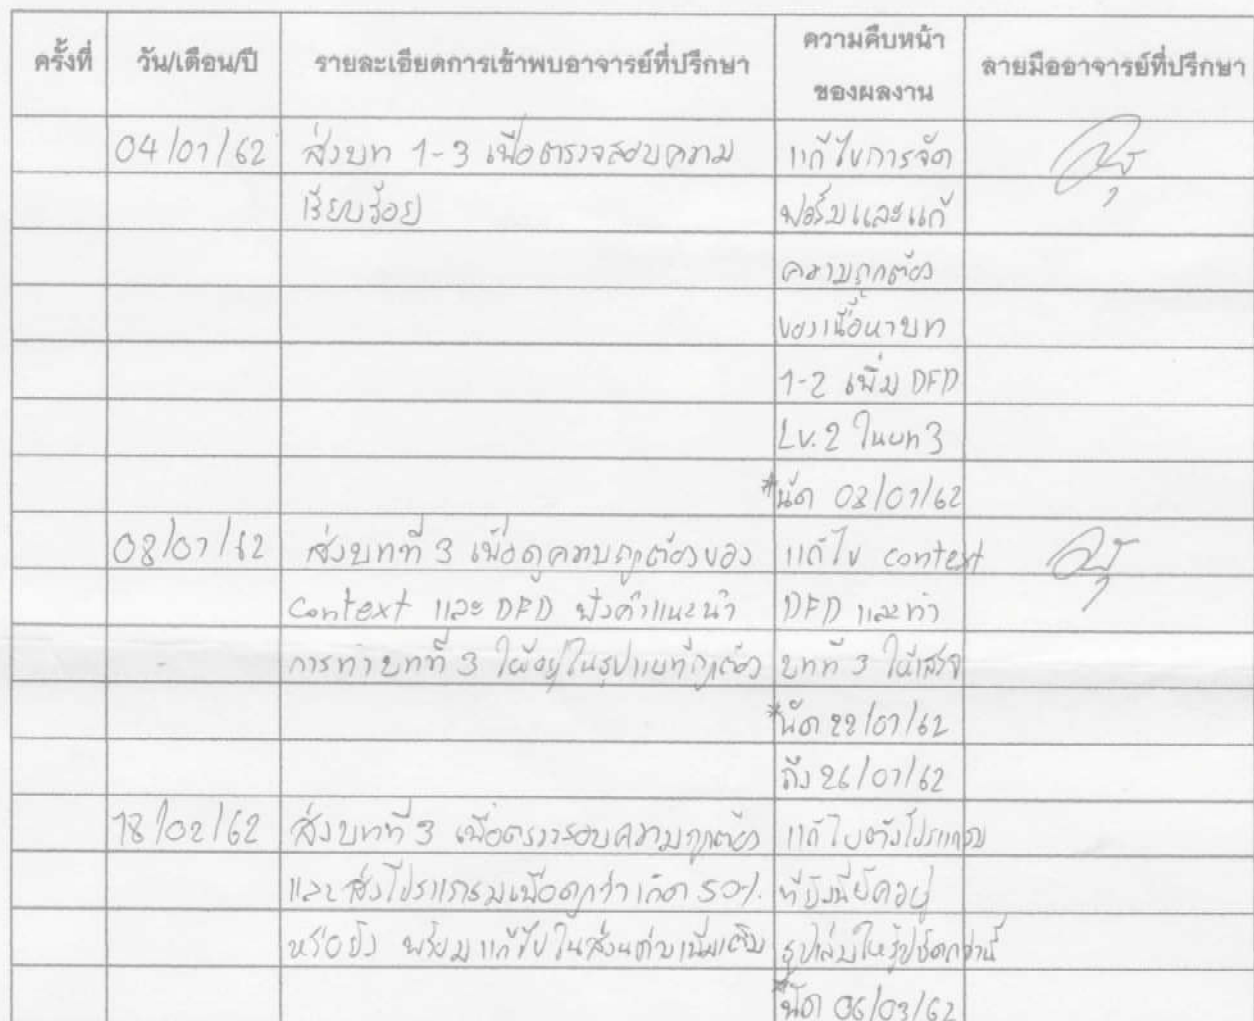 ครั้งที่ วัน/เดือน/ปี รายละเอียดการเข้าพบอาจารย์ที่ปรึกษา ความคืบหน้า ลายมืออาจารย์ที่ปรึกษา
ของผลงาน
04/01/62 ส่งบท 1-3 เพื่อตรวจสอบความ แก้ไขการจัด
เรียบร้อย ฟอร์มและแก้
ความถูกต้อง
ของเนื้อหาบท
1-2 เพิ่ม DFD
Lv.2 ในบท 3
*นัด 08/01/62
08/01/62 ส่งบทที่ 3 เพื่อดูความถูกต้องของ แก้ไข context
context และ DFD ฟังคำแนะนำ DFD และทำ
การทำบทที่ 3 ให้อยู่ในรูปแบบที่ถูกต้อง บทที่ 3 ให้เสร็จ
*นัด 22/01/62
ถึง 26/01/62
18/02/62 ส่งบทที่ 3 เพื่อตรวจสอบความถูกต้อง แก้ไขตัวโปรแกรม
และส่งโปรแกรมเพื่อดูว่าเกิด 50% ที่ยังมี อยู่
หรือยัง พร้อมแก้ไขในส่วน เพิ่มเติม รูปเล่มให้ กว่านี้
*นัด 06/03/62